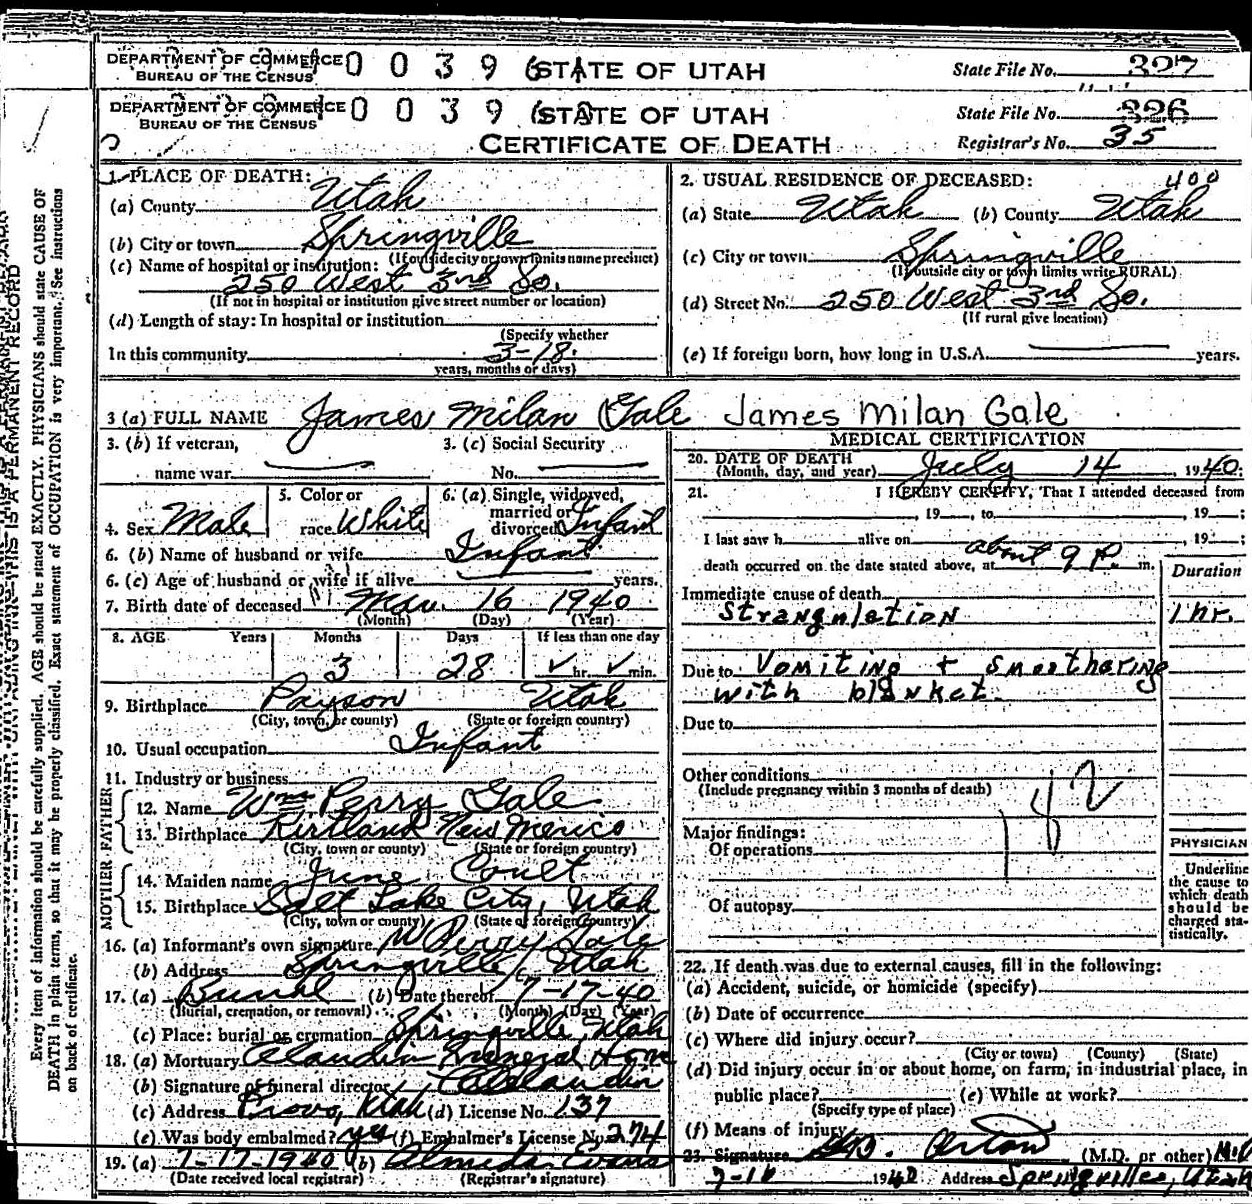 DEPARTMENT OF COMMERCE 0 0 3 9 6 STATE OF UTAH State File No. 327
BUREAU OF THE CENSUS
DEPARTMENT OF COMMERCE 0 0 3 9 6 STATE OF UTAH State File No. 326
BUREAU OF THE CENSUS
CERTIFICATE OF DEATH Registrar's No. 35
1. PLACE OF DEATH:
(a) County Utah
(b) City or town Springville
(If outside city or town limits name precinct)
(c) Name of hospital or institution:
250 West 3rd So.
(If not in hospital or institution give street number or location)
(d) Length of stay: In hospital or institution
(Specify whether
In this community 3-18.
years, months or days)
2. USUAL RESIDENCE OF DECEASED: 400
(a) State Utah (b) County Utah
(c) City or town Springville
(If outside city or town limits write RURAL)
(d) Street No. 250 West 3rd So.
(If rural give location)
(e) If foreign born, how long in U.S.A. years.
3 (a) FULL NAME James Milan Gale James Milan Gale
3. (b) If veteran, 3. (c) Social Security
name war No.
4. Sex Male 5. Color or race White 6. (a) Single, widowed, married or divorced Infant
6. (b) Name of husband or wife Infant
6. (c) Age of husband or wife if alive years.
7. Birth date of deceased Mar. 16 1940
(Month) (Day) (Year)
8. AGE Years Months Days If less than one day
3 28 hr. min.
9. Birthplace Payson Utah
(City, town, or county) (State or foreign country)
10. Usual occupation Infant
11. Industry or business
FATHER
12. Name Wm Perry Gale
13. Birthplace Kirtland New Mexico
(City, town or county) (State or foreign country)
MOTHER
14. Maiden name June Coult
15. Birthplace Salt Lake City, Utah
(City, town or county) (State or foreign country)
16. (a) Informant's own signature W Perry Gale
(b) Address Springville, Utah
17. (a) Burial (b) Date thereof 7-17-40
(Burial, cremation, or removal) (Month) (Day) (Year)
(c) Place: burial or cremation Springville Utah
18. (a) Mortuary Claudin Funeral Home
(b) Signature of funeral director Claudin
(c) Address Provo, Utah (d) License No. 137
(e) Was body embalmed? yes (f) Embalmer's License No. 274
19. (a) 7-17-1940 (b) Almeda Evans
(Date received local registrar) (Registrar's signature)
MEDICAL CERTIFICATION
20. DATE OF DEATH
(Month, day, and year) July 14, 1940.
21. I HEREBY CERTIFY, That I attended deceased from
, 19 , to , 19 ;
I last saw h alive on , 19 ;
death occurred on the date stated above, at about 9 P. m.
Duration
Immediate cause of death
Strangulation 1 hr.
Due to Vomiting + smothering
with blanket.
Due to
Other conditions
(Include pregnancy within 3 months of death)
Major findings:
Of operations
Of autopsy
PHYSICIAN
Underline
the cause to
which death
should be
charged sta-
tistically.
22. If death was due to external causes, fill in the following:
(a) Accident, suicide, or homicide (specify)
(b) Date of occurrence
(c) Where did injury occur?
(City or town) (County) (State)
(d) Did injury occur in or about home, on farm, in industrial place, in
public place? (e) While at work?
(Specify type of place)
(f) Means of injury
23. Signature (M.D. or other) M.D
7-16 1940 Address Springville, Utah
Every item of information should be carefully supplied. AGE should be stated EXACTLY. PHYSICIANS should state CAUSE OF
DEATH in plain terms, so that it may be properly classified. Exact statement of OCCUPATION is very important. See instructions
on back of certificate.